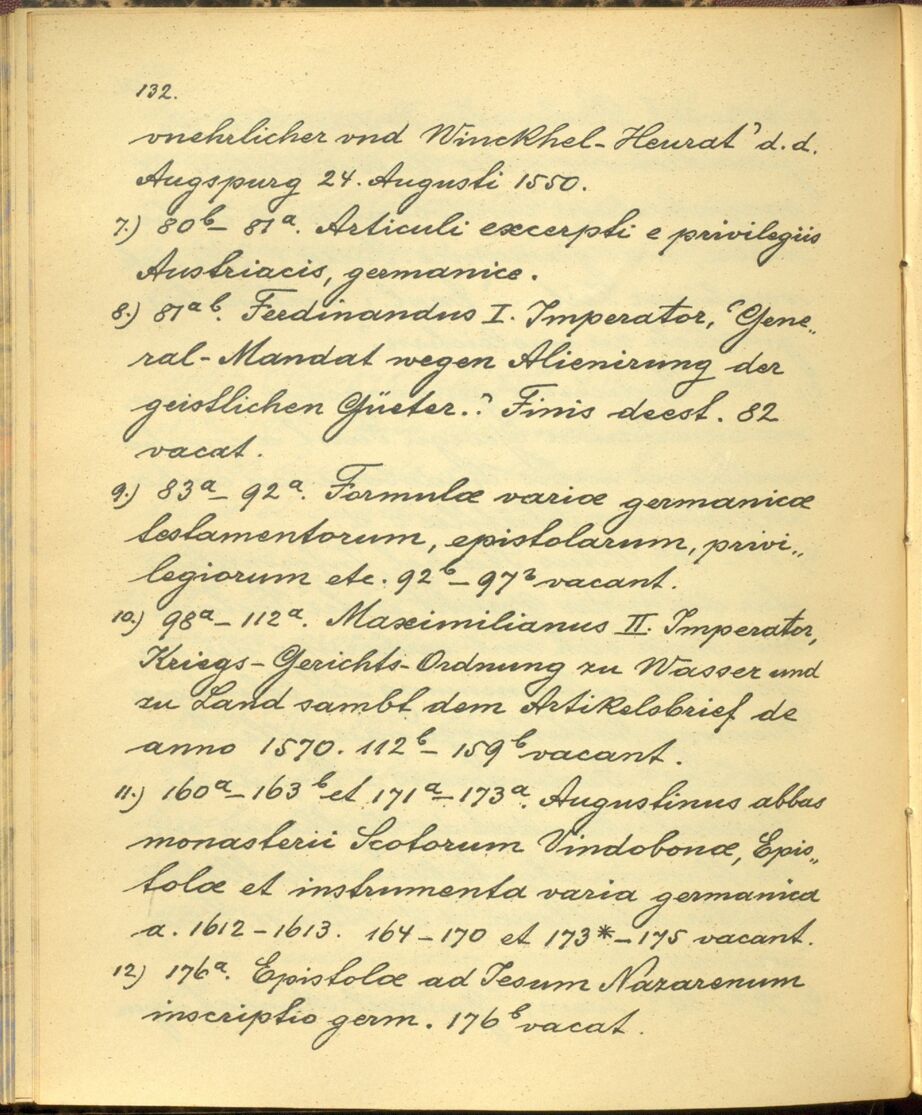 132.
vnehrlicher vnd Winckhel-Heurat' d. d.
Augspurg 24. Augusti 1550.
7.) 80ᵇ– 81ᵃ. Articuli excerpti e privilegiis
Austriacis, germanice.
8.) 81ᵃᵇ. Ferdinandus I. Imperator, 'Gene„
ral-Mandat wegen Alienirung der
geistlichen Güeter..' Finis deest. 82
vacat.
9.) 83ᵃ– 92ᵃ. Formulæ variæ germanicæ
testamentorum, epistolarum, privi„
legiorum etc. 92ᵇ– 97ᵇ vacant.
10.) 98ᵃ– 112ᵃ. Maximilianus II. Imperator,
Kriegs-Gerichts-Ordnung zu Wasser und
zu Land sambt dem Artikelsbrief de
anno 1570. 112ᵇ– 159ᵇ vacant.
11.) 160ᵃ– 163ᵇ et 171ᵃ– 173ᵃ. Augustinus abbas
monasterii Scotorum Vindobonæ, Epis„
tolæ et instrumenta varia germanica
a. 1612–1613. 164–170 et 173*–175 vacant.
12) 176ᵃ. Epistolæ ad Iesum Nazarenum
inscriptio germ. 176ᵇ vacat.